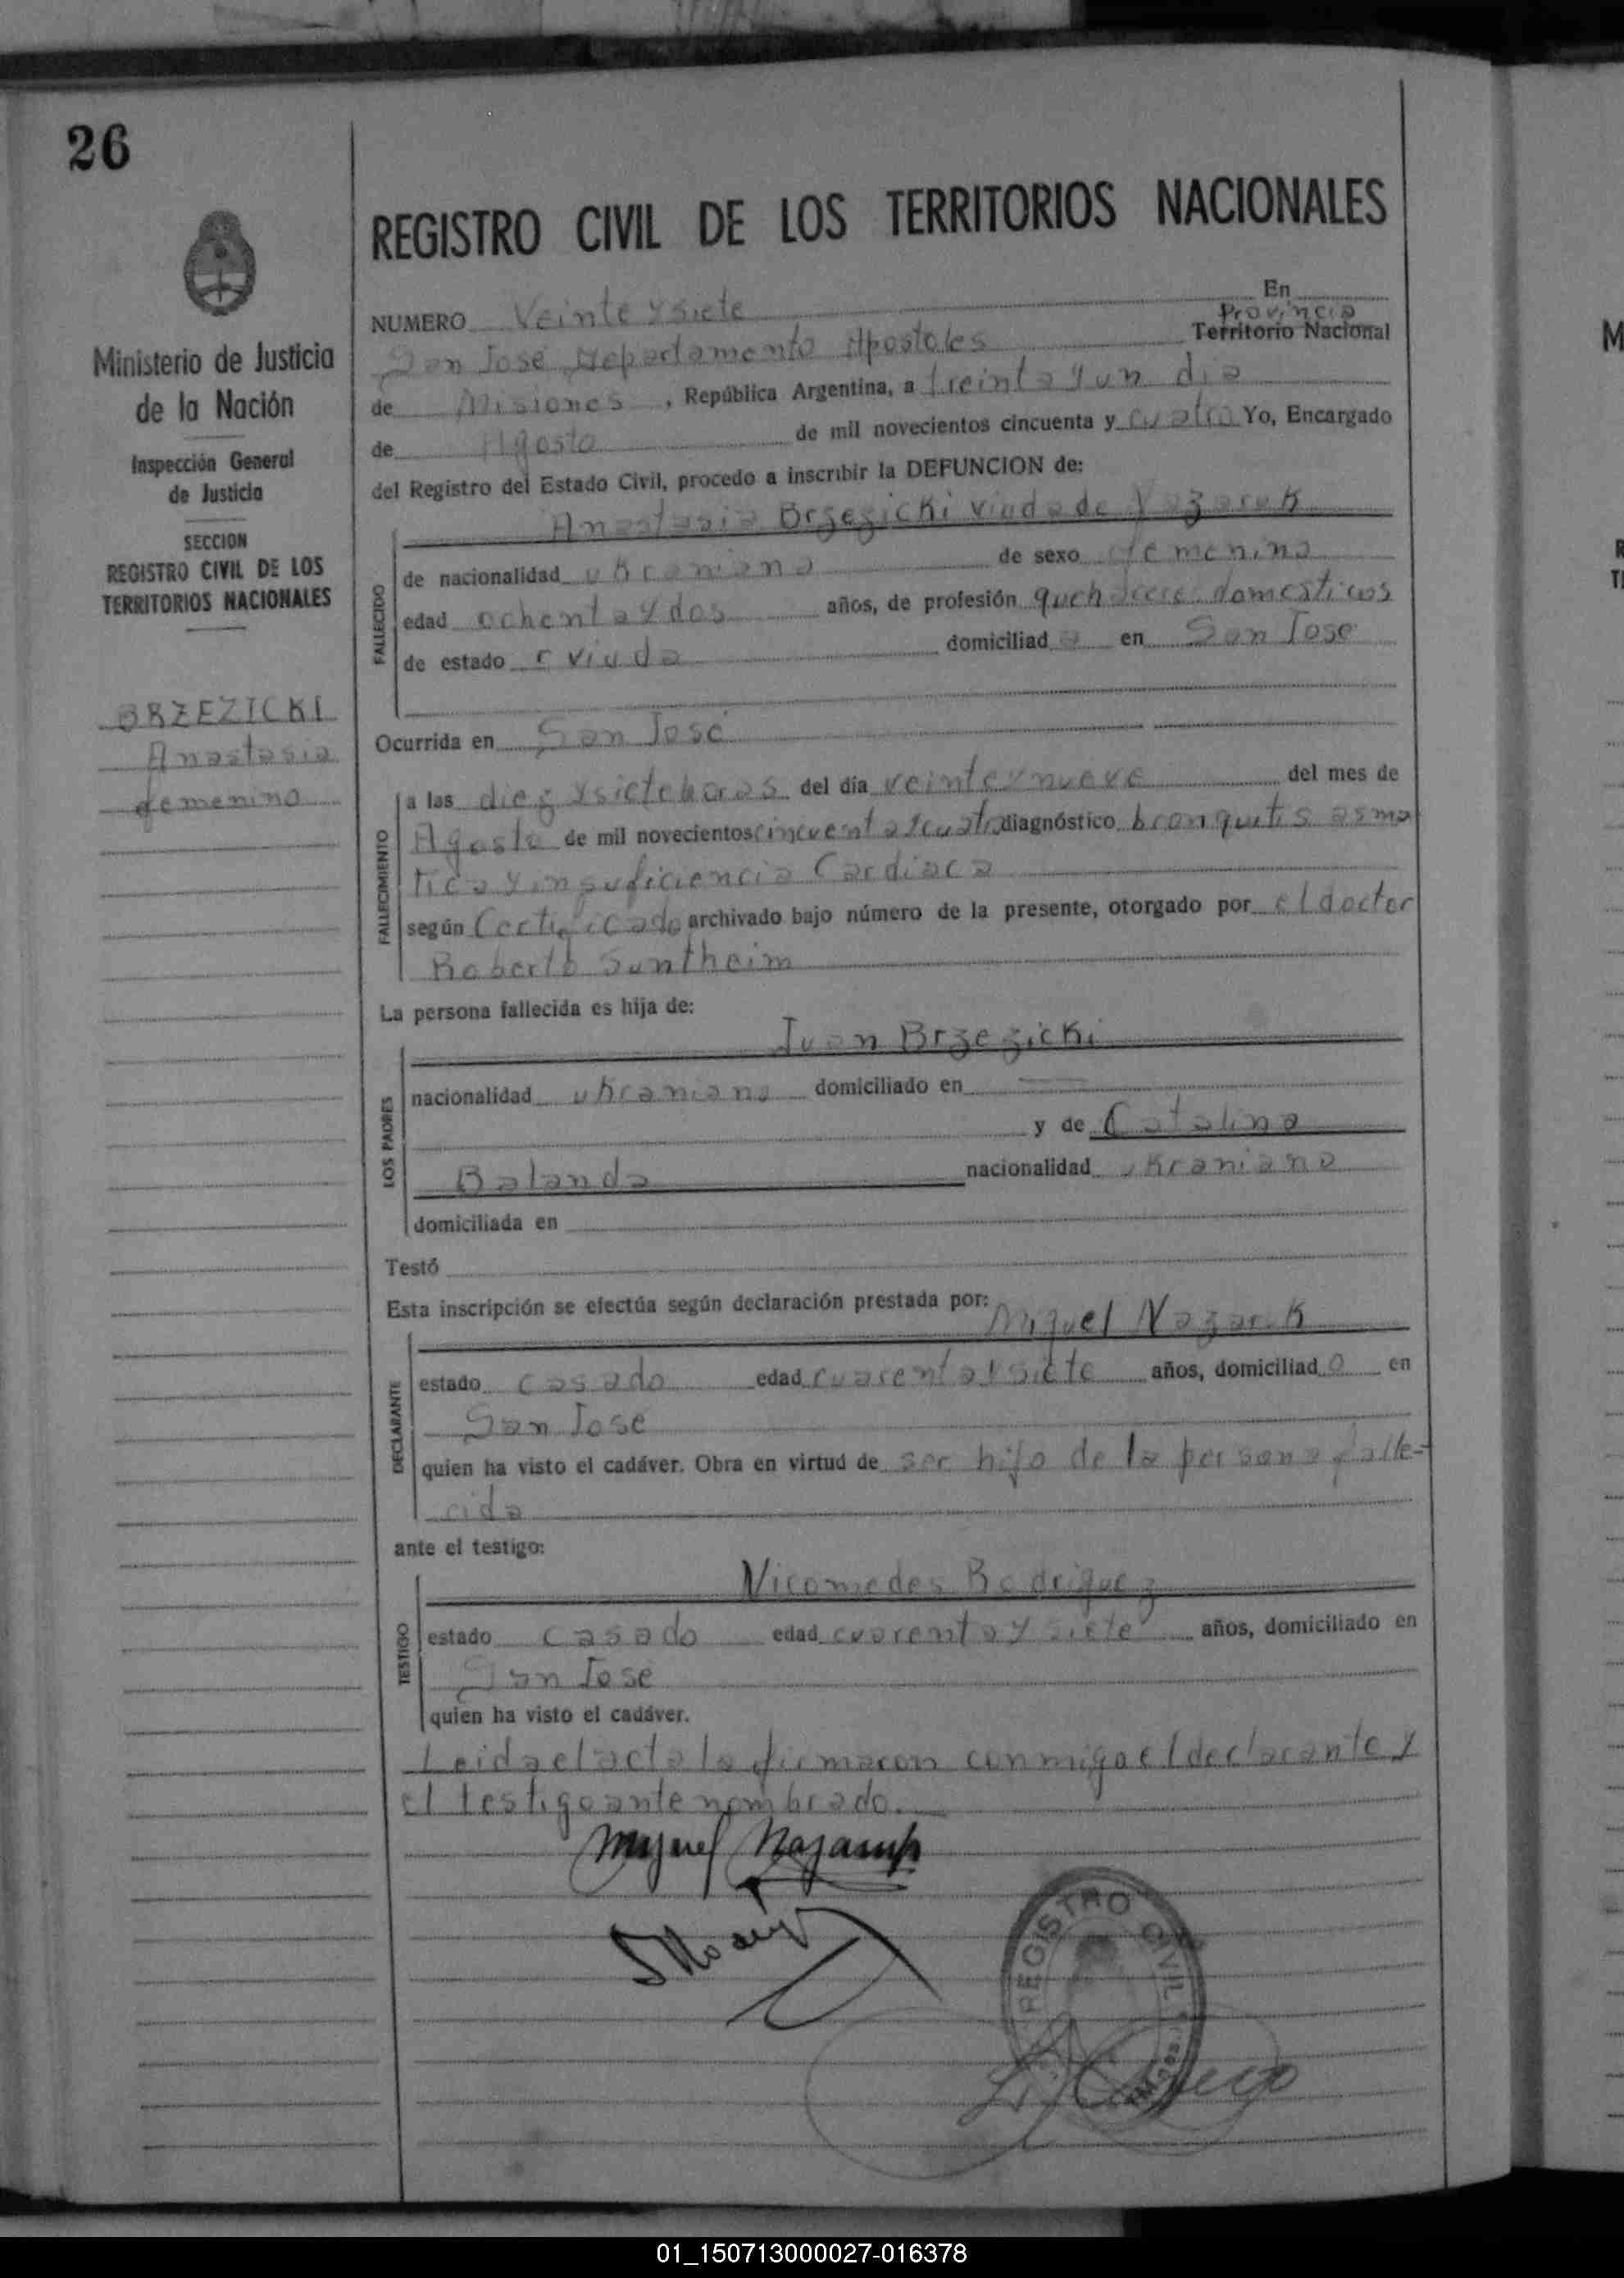 26
REGISTRO CIVIL DE LOS TERRITORIOS NACIONALES
Ministerio de Justicia
de la Nación
Inspección General
de Justicia
SECCION
REGISTRO CIVIL DE LOS
TERRITORIOS NACIONALES
BRZEZICKI
Anastasia
femenino
NUMERO Veinte y siete En
Provincia
San José Departamento Apostoles Territorio Nacional
de Misiones, República Argentina, a treinta y un dia
de Agosto de mil novecientos cincuenta y cuatro Yo, Encargado
del Registro del Estado Civil, procedo a inscribir la DEFUNCION de:
Anastasia Brzezicki viuda de Nazaruk
FALLECIDO
de nacionalidad ukraniana de sexo femenino
edad ochenta y dos años, de profesión quehaceres domesticos
de estado viuda domiciliad a en San Jose
Ocurrida en San José
FALLECIMIENTO
a las diez y siete horas del día veinte y nueve del mes de
Agosto de mil novecientos cincuenta y cuatro diagnóstico bronquitis asma
tica y insuficiencia Cardiaca
según Certificado archivado bajo número de la presente, otorgado por el doctor
Roberto Suntheim
La persona fallecida es hija de:
Juan Brzezicki
LOS PADRES
nacionalidad ukraniano domiciliado en —
y de Catalina
Balanda nacionalidad ukraniana
domiciliada en
Testó
Esta inscripción se efectúa según declaración prestada por:
Miguel Nazaruk
DECLARANTE
estado casado edad cuarenta y siete años, domiciliad o en
San Jose
quien ha visto el cadáver. Obra en virtud de ser hijo de la persona falle-
cida
ante el testigo:
Nicomedes Rodriguez
TESTIGO
estado casado edad cuarenta y siete años, domiciliado en
San Jose
quien ha visto el cadáver.
Leida el acta la firmaron conmigo el declarante y
el testigo ante nombrado.
Miguel Nazaruk
REGISTRO CIVIL
01_150713000027-016378